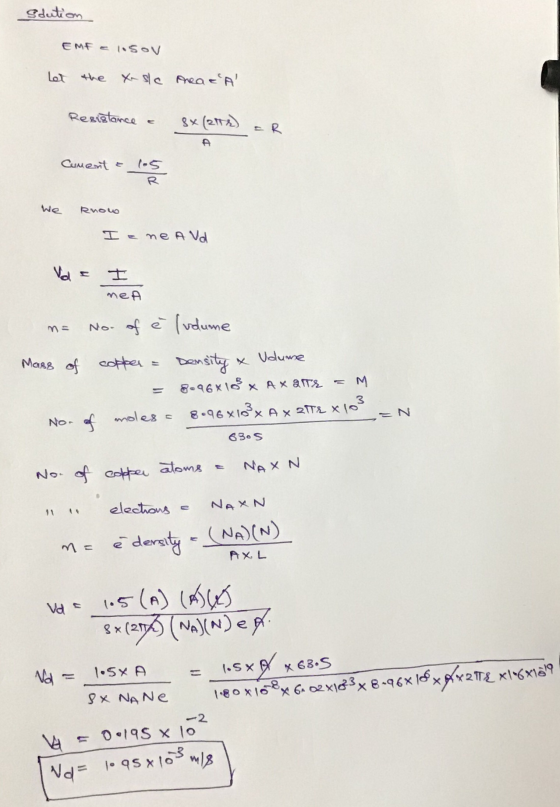 Solution
EMF = 1.50V
Let the X-s/c Area = 'A'
Resistance = ρ×(2πr) / A = R
Current = 1.5 / R
We know
I = neAVd
Vd = I / neA
n = No. of e⁻ / volume
Mass of copper = Density × Volume
= 8.96×10³ × A × 2πr = M
No. of moles = 8.96×10³ × A × 2πr × 10³ / 63.5 = N
No. of copper atoms = NA × N
" " electrons = NA × N
n = e⁻ density = (NA)(N) / A×L
Vd = 1.5 (A) (A)(L) / ρ×(2πr) (NA)(N) e A.
Vd = 1.5×A / ρ× NANe = 1.5×A ×63.5 / 1.80×10⁻⁸×6.02×10²³×8.96×10⁶×A×2πr×1.6×10⁻¹⁹
Vd = 0.195 × 10⁻²
Vd = 1.95×10⁻³ m/s